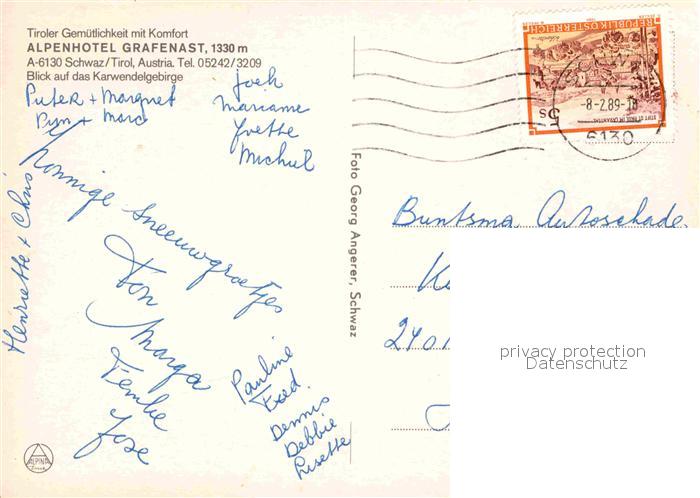 Tiroler Gemütlichkeit mit Komfort
ALPENHOTEL GRAFENAST, 1330 m
A-6130 Schwaz/Tirol, Austria. Tel. 05242/3209
Blick auf das Karwendelgebirge
Peter + Margret
Pym + Marc
Joch
Marianne
Yvette
Michiel
Henriette + Chris
Zonnige sneeuwgroetjes
Ton
Marga
Femke
Jose
Pauline
Fred.
Dennis
Debbie
Lisette
ALPINA
Foto Georg Angerer, Schwaz
REPUBLIK ÖSTERREICH
5s
-8-2.89-18
6130
Buntsma Autoschade
2401
privacy protection
Datenschutz